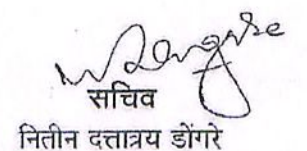 सचिव
नितीन दत्तात्रय डोंगरे